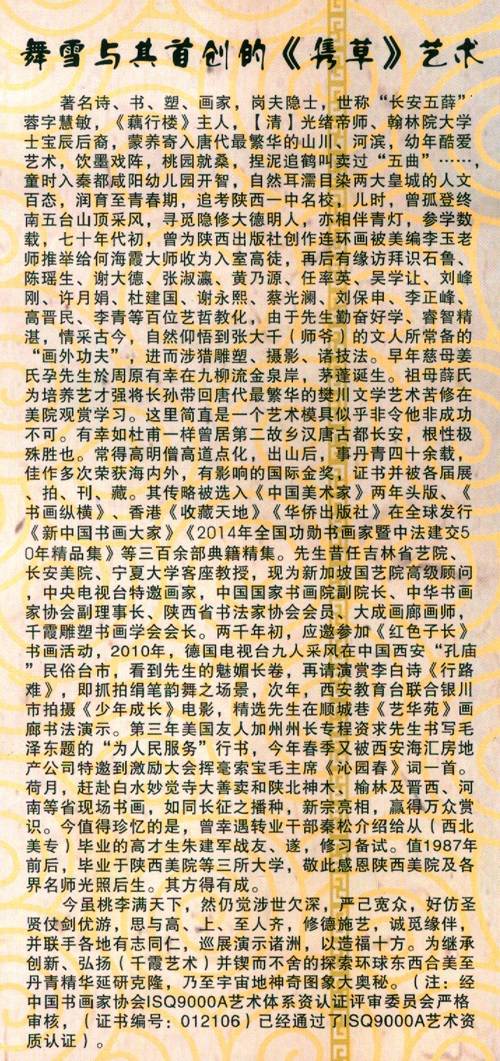 舞雪与其首创的《隽草》艺术
著名诗、书、塑、画家，岗夫隐士，世称“长安五薛”
蓉字慧敏，《藕行楼》主人，【清】光绪帝师、翰林院大学
士宝辰后裔，蒙养寄入唐代最繁华的山川、河滨，幼年酷爱
艺术，饮墨戏阵，桃园就桑，捏泥追鹤叫卖过“五曲”……，
童时入秦都咸阳幼儿园开智，自然耳濡目染两大皇城的人文
百态，润育至青春期，追考陕西一中名校，儿时，曾孤登终
南五台山顶采风，寻觅隐修大德明人，亦相伴青灯，参学数
载，七十年代初，曾为陕西出版社创作连环画被美编李玉老
师推举给何海霞大师收为入室高徒，再后有缘访拜识石鲁、
陈瑶生、谢大德、张淑瀛、黄乃源、任率英、吴学让、刘峰
刚、许月娟、杜建国、谢永熙、蔡光澜、刘保申、李正峰、
高晋民、李青等百位艺哲教化，由于先生勤奋好学、睿智精
湛，情采古今，自然仰悟到张大千（师爷）的文人所常备的
“画外功夫”，进而涉猎雕塑、摄影、诸技法。早年慈母姜
氏孕先生於周原有幸在九柳流金泉岸，茅蓬诞生。祖母薛氏
为培养艺才强将长孙带回唐代最繁华的樊川文学艺术苦修在
美院观赏学习。这里简直是一个艺术模具似乎非令他非成功
不可。有幸如杜甫一样曾居第二故乡汉唐古都长安，根性极
殊胜也。常得高明僧高道点化，出山后，事丹青四十余载，
佳作多次荣获海内外，有影响的国际金奖，证书并被各届展
、拍、刊、藏。其传略被选入《中国美术家》两年头版、《
书画纵横》、香港《收藏天地》《华侨出版社》在全球发行
《新中国书画大家》《2014年全国功勋书画家暨中法建交5
0年精品集》等三百余部典籍精集。先生昔任吉林省艺院、
长安美院、宁夏大学客座教授，现为新加坡国艺院高级顾问
，中央电视台特邀画家，中国国家书画院副院长、中华书画
家协会副理事长、陕西省书法家协会会员、大成画廊画师，
千霞雕塑书画学会会长。两千年初，应邀参加《红色子长》
书画活动，2010年，德国电视台九人采风在中国西安“孔庙
”民俗台市，看到先生的魅媚长卷，再请演赏李白诗《行路
难》，即抓拍绢笔韵舞之场景，次年，西安教育台联合银川
市拍摄《少年成长》电影，精选先生在顺城巷《艺华苑》画
廊书法演示。第三年美国友人加州州长专程资求先生书写毛
泽东题的“为人民服务”行书，今年春季又被西安海汇房地
产公司特邀到激励大会挥毫索宝毛主席《沁园春》词一首。
荷月，赶赴白水妙觉寺大善卖和陕北神木、榆林及晋西、河
南等省现场书画，如同长征之播种，新宗亮相，赢得万众赏
识。今值得珍忆的是，曾幸遇转业干部秦松介绍给从（西北
美专）毕业的高才生朱建军战友、遂，修习备试。值1987年
前后，毕业于陕西美院等三所大学，敬此感恩陕西美院及各
界名师光照后生。其方得有成。
今虽桃李满天下，然仍觉涉世欠深，严己宽众，好仿圣
贤仗剑优游，思与高、上、至人齐，修德施艺，诚觅缘伴，
并联手各地有志同仁，巡展演示诸洲，以造福十方。为继承
创新、弘扬（千霞艺术）并锲而不舍的探索环球东西合美至
丹青精华延研克隆，乃至宇宙地神奇图象大奥秘。（注：经
中国书画家协会ISQ9000A艺术体系资认证评审委员会严格
审核，（证书编号：012106）已经通过了ISQ9000A艺术资
质认证）。